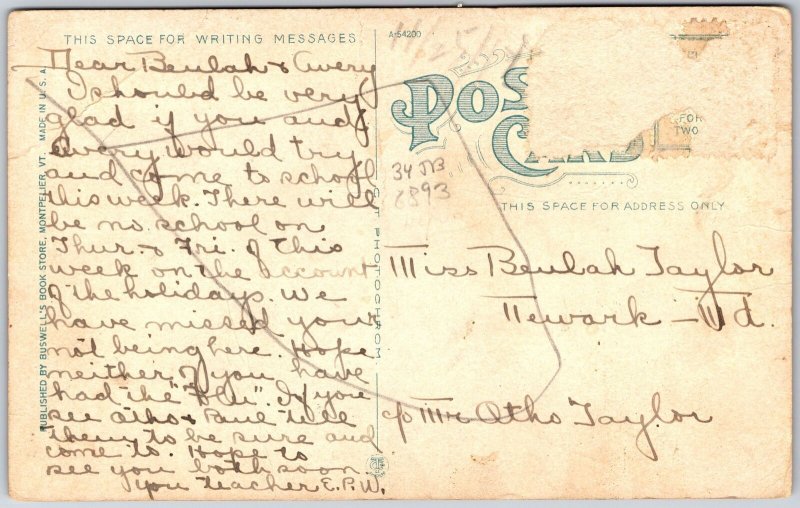 THIS SPACE FOR WRITING MESSAGES
A-54200
Dear Beulah & Avery
I should be very
glad if you and
Avery would try
and come to school
this week. There will
be no school on
Thur. & Fri. of this
week on the account
of the holidays. We
have missed your
not being here. Hope
neither of you have
had the "Flu". If you
see Otho & Paul tell
them to be sure and
come to. Hope to
see you both soon.
You teacher E.P.W.
PUBLISHED BY BUSWELL'S BOOK STORE, MONTPELIER, VT. MADE IN U.S.A.
POST
CARD
FOR
TWO
34 JB
6893
THIS SPACE FOR ADDRESS ONLY
Miss Beulah Taylor
Newark - Md.
c/o Mr Otho Taylor